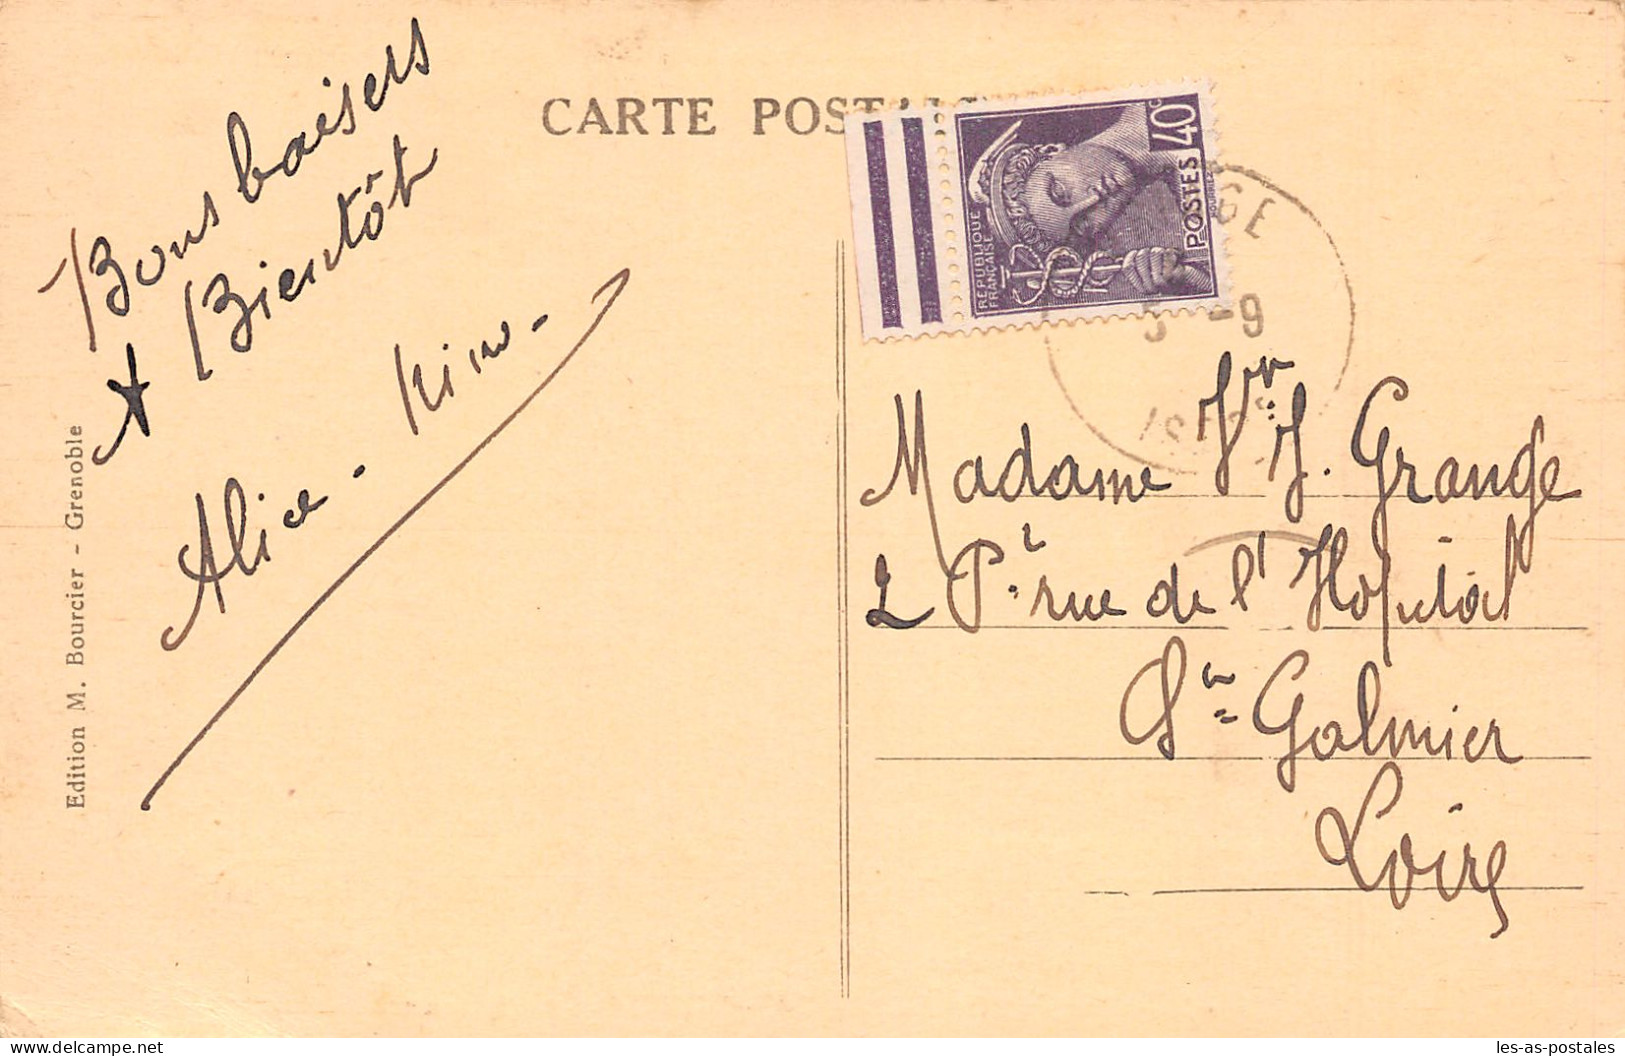 CARTE POSTALE
Bons baisers
A Bientôt
Alice - Kiw -
Edition M. Bourcier - Grenoble
40c
POSTES
REPUBLIQUE
FRANÇAISE
GE
5 -9
ISERE
Madame Vve J. Grange
2 Pte rue de l'Hopital
St Galmier
Loire
delcampe.net
les-as-postales